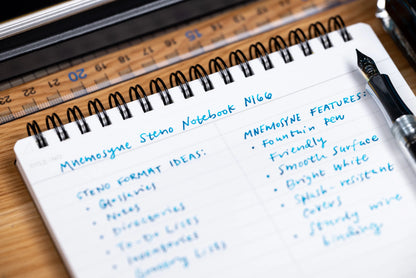 Mnemosyne Steno Notebook N166
STENO FORMAT IDEAS:
• Glossaries
• Notes
• Directories
• To-Do Lists
• Inventories
• Grocery Lists
MNEMOSYNE FEATURES:
• Fountain Pen
Friendly
• Smooth Surface
• Bright White
• Splash-resistant
Covers
• Sturdy wire
binding
22 21 20 19 18 17 16 15